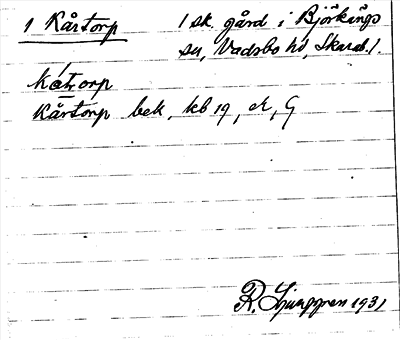 1 Kårtorp / sk. gård i Björkängs
sn, Vadsbo hd, Skarab./.
Kårtorp bek, kb 19, A, G
R. Ljunggren 1931